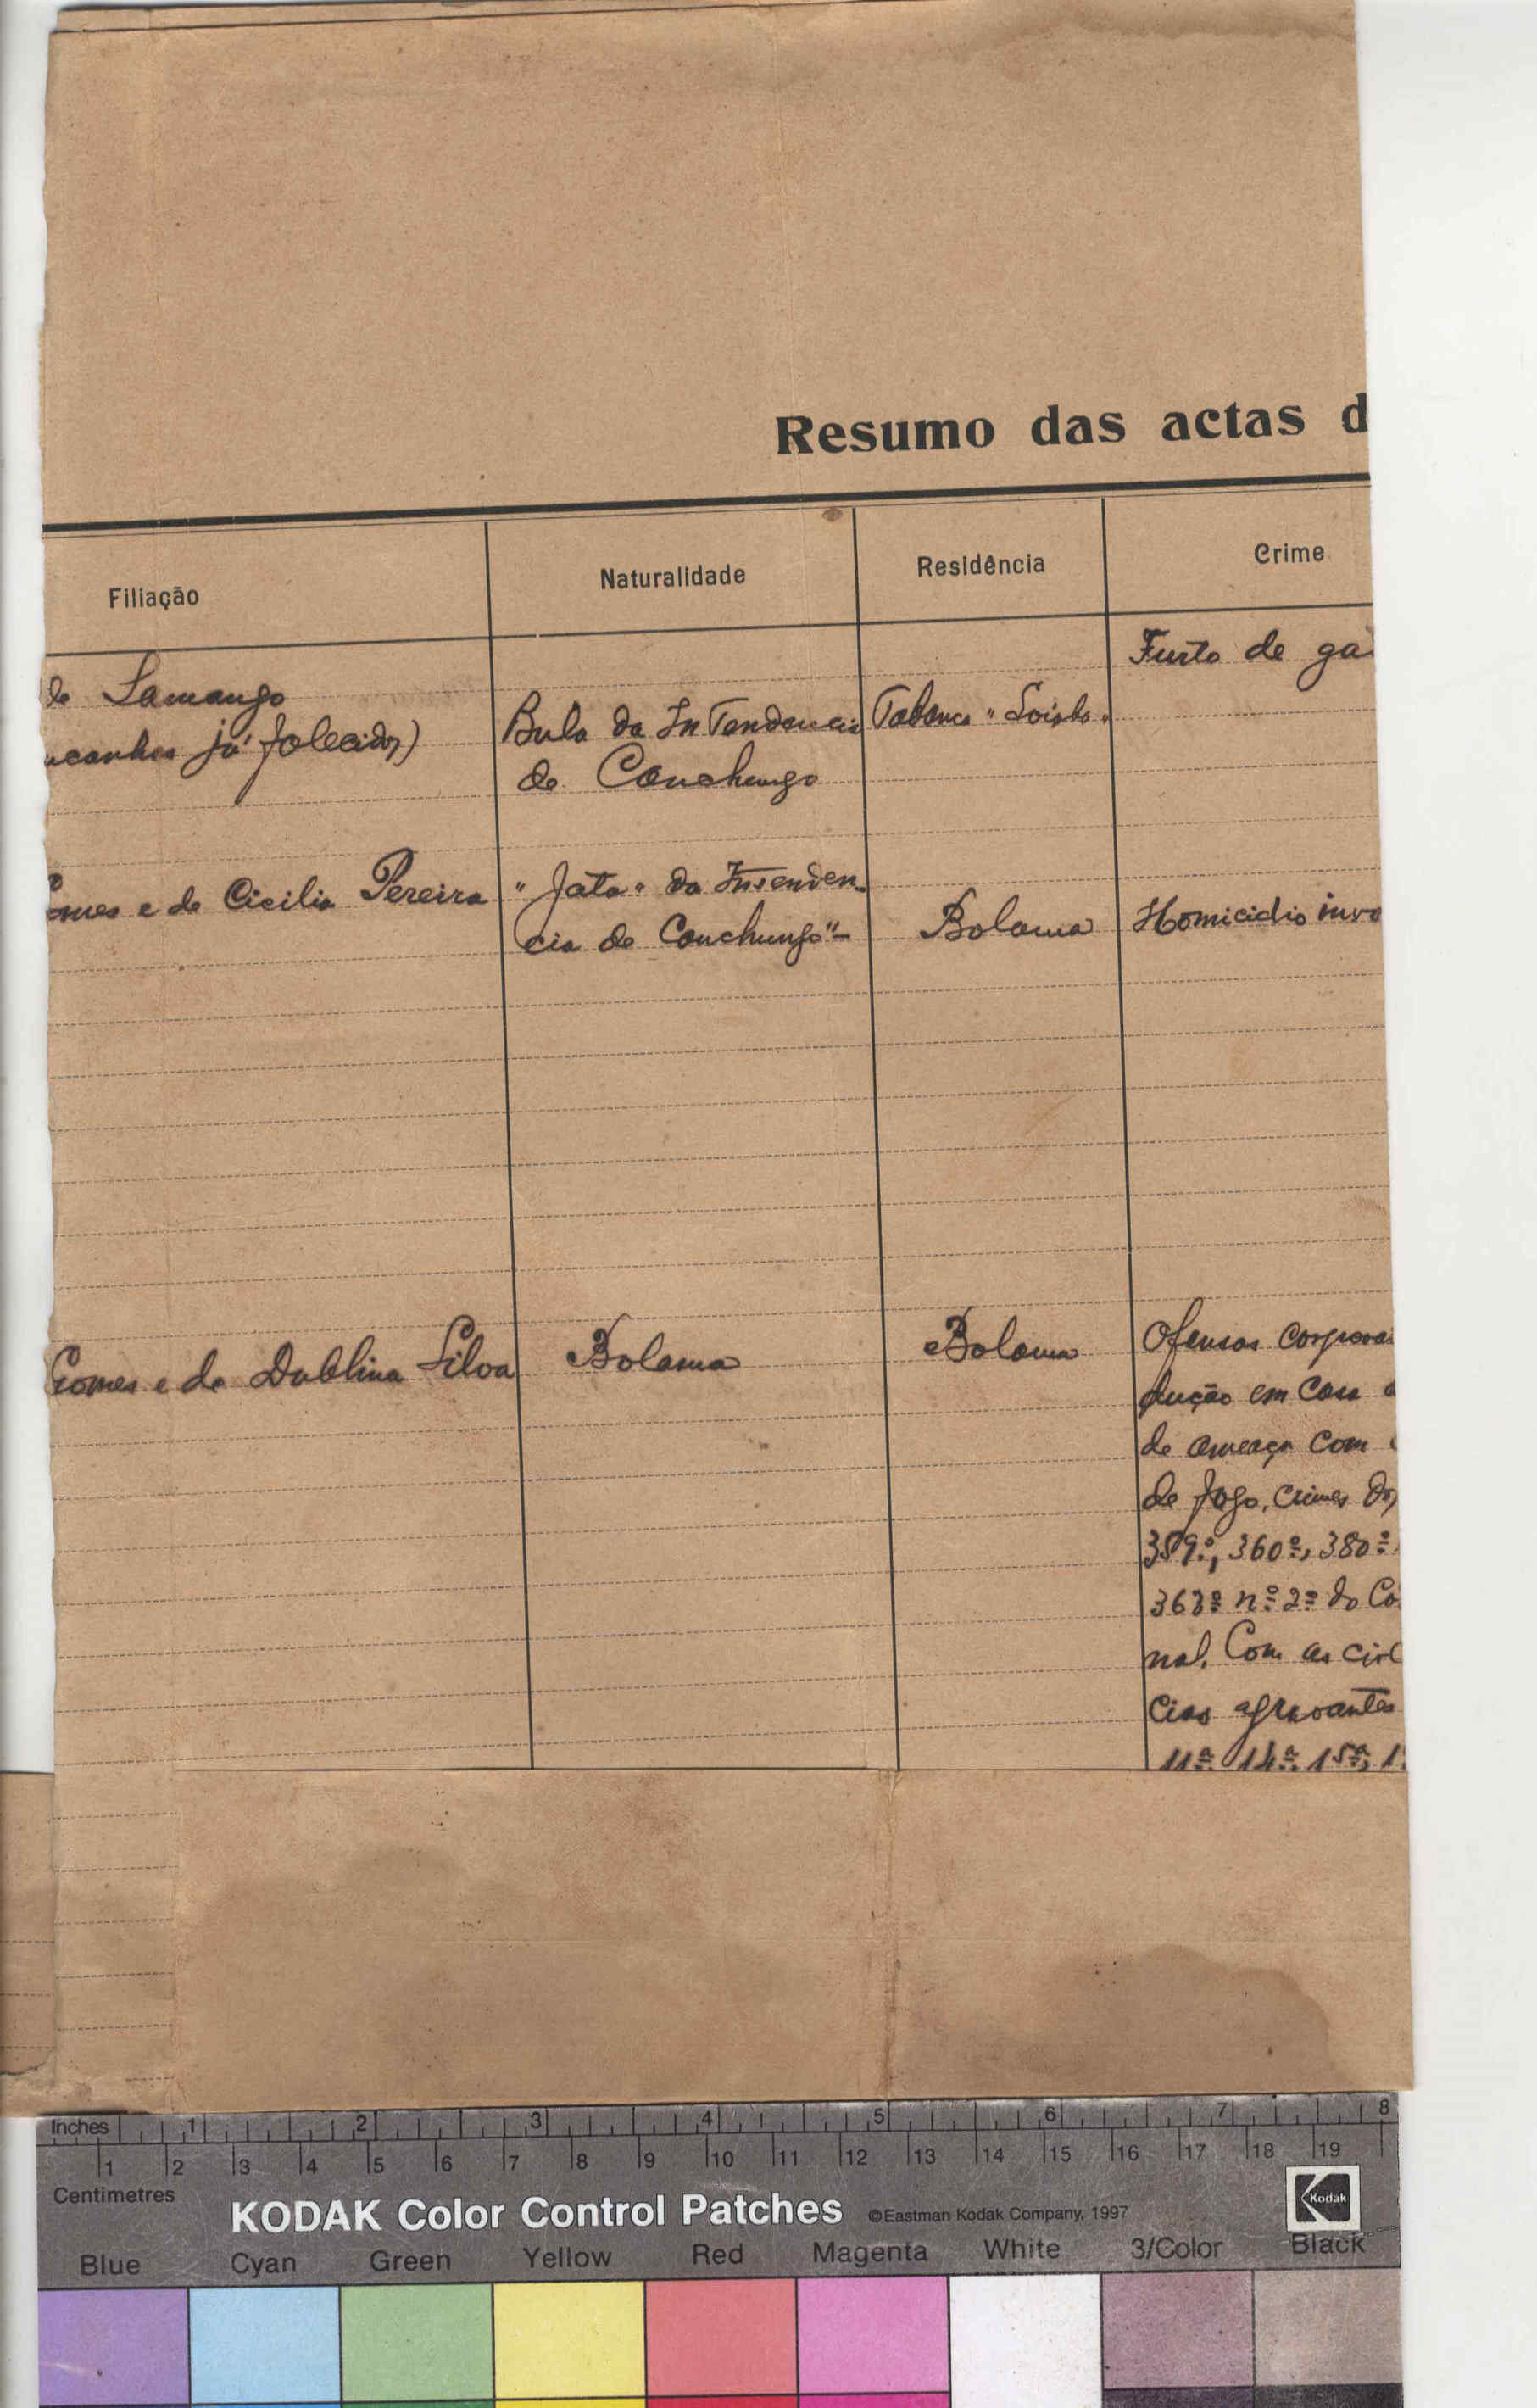 Resumo das actas d
Filiação
Naturalidade
Residência
Crime
Furto de ga
de Samango
Bula da Intendencia
Tabanca "
ucanhes já falecidos)
de Canchungo
omes e de Cicilia Pereira
"Jata" da Intenden-
cia de Canchungo"-
Bolama
Homicidio invo
Gomes e de Dublina Silva
Bolama
Bolama
Ofensas corporai
dução em casa a
de ameaça com
de fogo, crimes dos
359º, 360º, 380º
363º nº 2º do Co
nal. Com as circ
cias agravantes
11ª, 14ª, 15ª, 1
Inches 1 2 3 4 5 6 7 8
1 2 3 4 5 6 7 8 9 10 11 12 13 14 15 16 17 18 19
Centimetres
KODAK Color Control Patches ©Eastman Kodak Company, 1997
Kodak
Blue Cyan Green Yellow Red Magenta White 3/Color Black